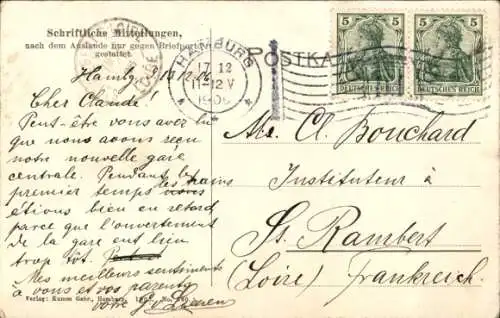 Schriftliche Mitteilungen,
nach dem Auslande nur gegen Briefporto
gestattet.
POSTKA
HAMBURG
17 12
11-12 V
1906
5 5
5 5
DEUTSCHES REICH DEUTSCHES REICH
Hambg 17/12.06
Cher Claude!
Peut-être vous avez lu
que nous avons reçu
notre nouvelle gare
centrale. Pendant les
premier temps les trains
étions bien en retard
parce que l'ouvertement
de la gare eut lieu
trop tôt.
Mes meilleurs sentiments
à vous et vos parents
votre
Mr. Cl. Bouchard
Instituteur à
St. Rambert
(Loire) Frankreich.
Verlag: Kunom Gebr., Hamburg.